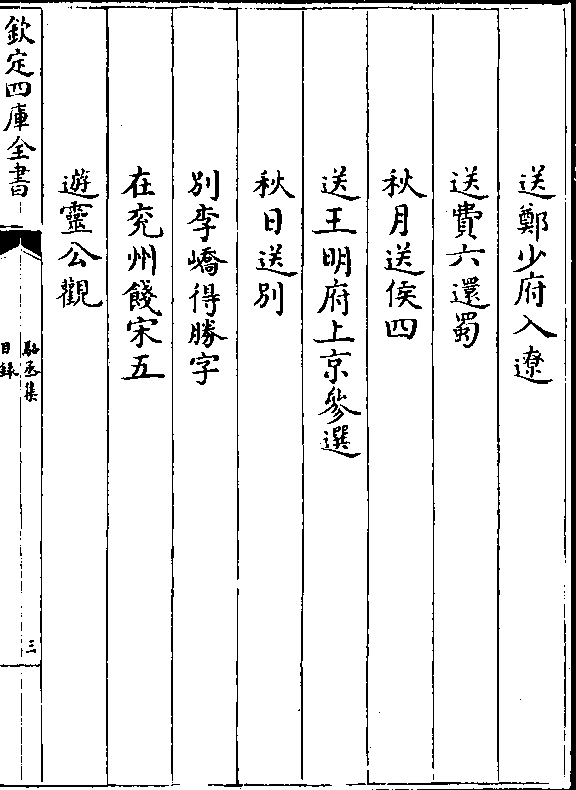 送鄭少府入遼
送費六還蜀
秋月送侯四
送王明府上京參選
秋日送別
別李嶠得勝字
在兖州餞宋五
遊靈公觀
欽定四庫全書
駱丞集
目錄
三